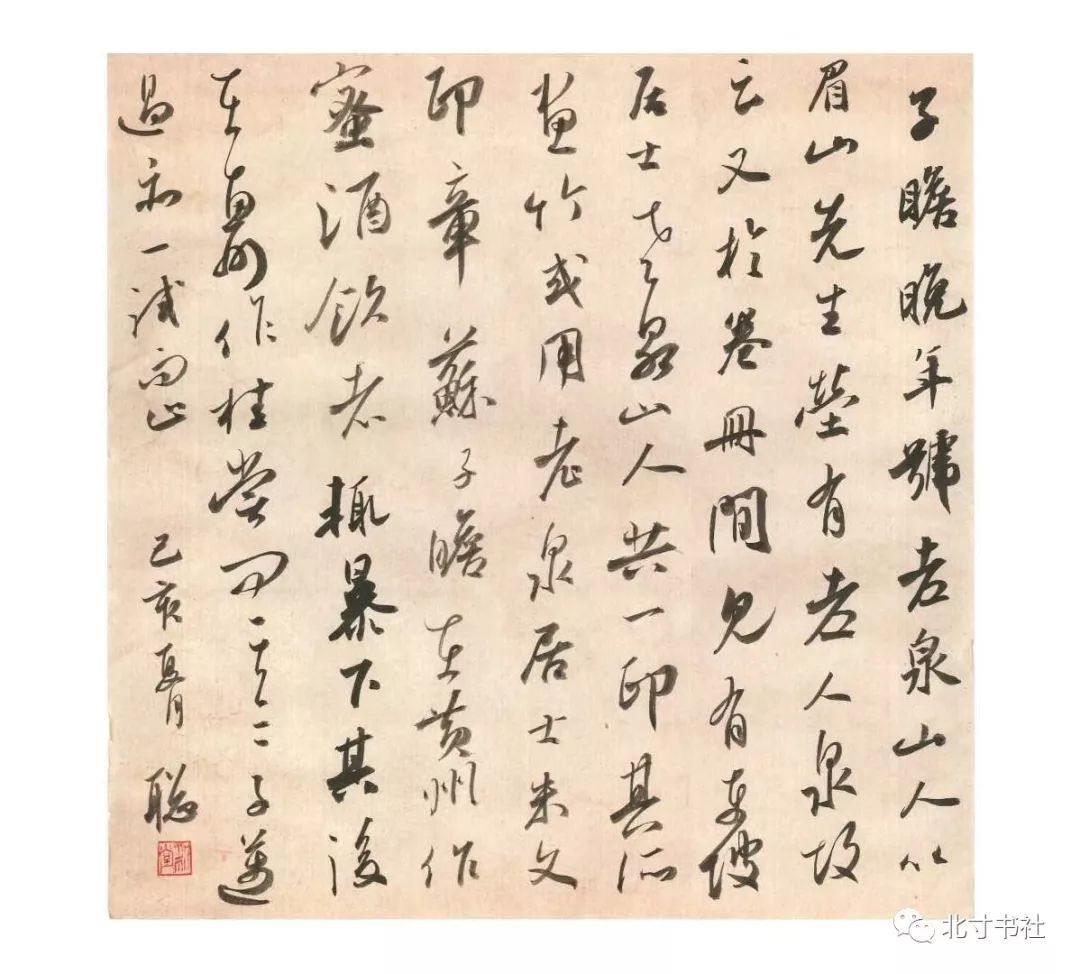 子瞻晚年號老泉山人以
眉山先生塋有老人泉故
云又於卷冊間見有東坡
居士老泉山人共一印其所
畫竹或用老泉居士朱文
印章 蘇子瞻在黃州作
蜜酒飲者輒暴下其後
在惠州作桂嘗問其二子邁
過亦一試而止 己亥夏月 聰
北寸书社